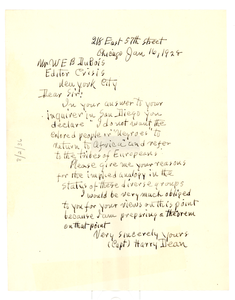 218 East 57th street
Chicago Jan 16, 1928
Mr W E B DuBois
Editor Crisis
New York City
Dear Sir:
In your answer to your
inquirer in San Diego you
declare "I do not want the
colored people or "Negroes" to
return to Africa and refer
to the tribes of Europeans.
Please give me your reasons
for the implied analogy in the
status of these diverse groups
I would be very much obliged
to you for your views on this point
because I am preparing a theorem
on that point
Very sincerely yours
(Capt) Harry Dean